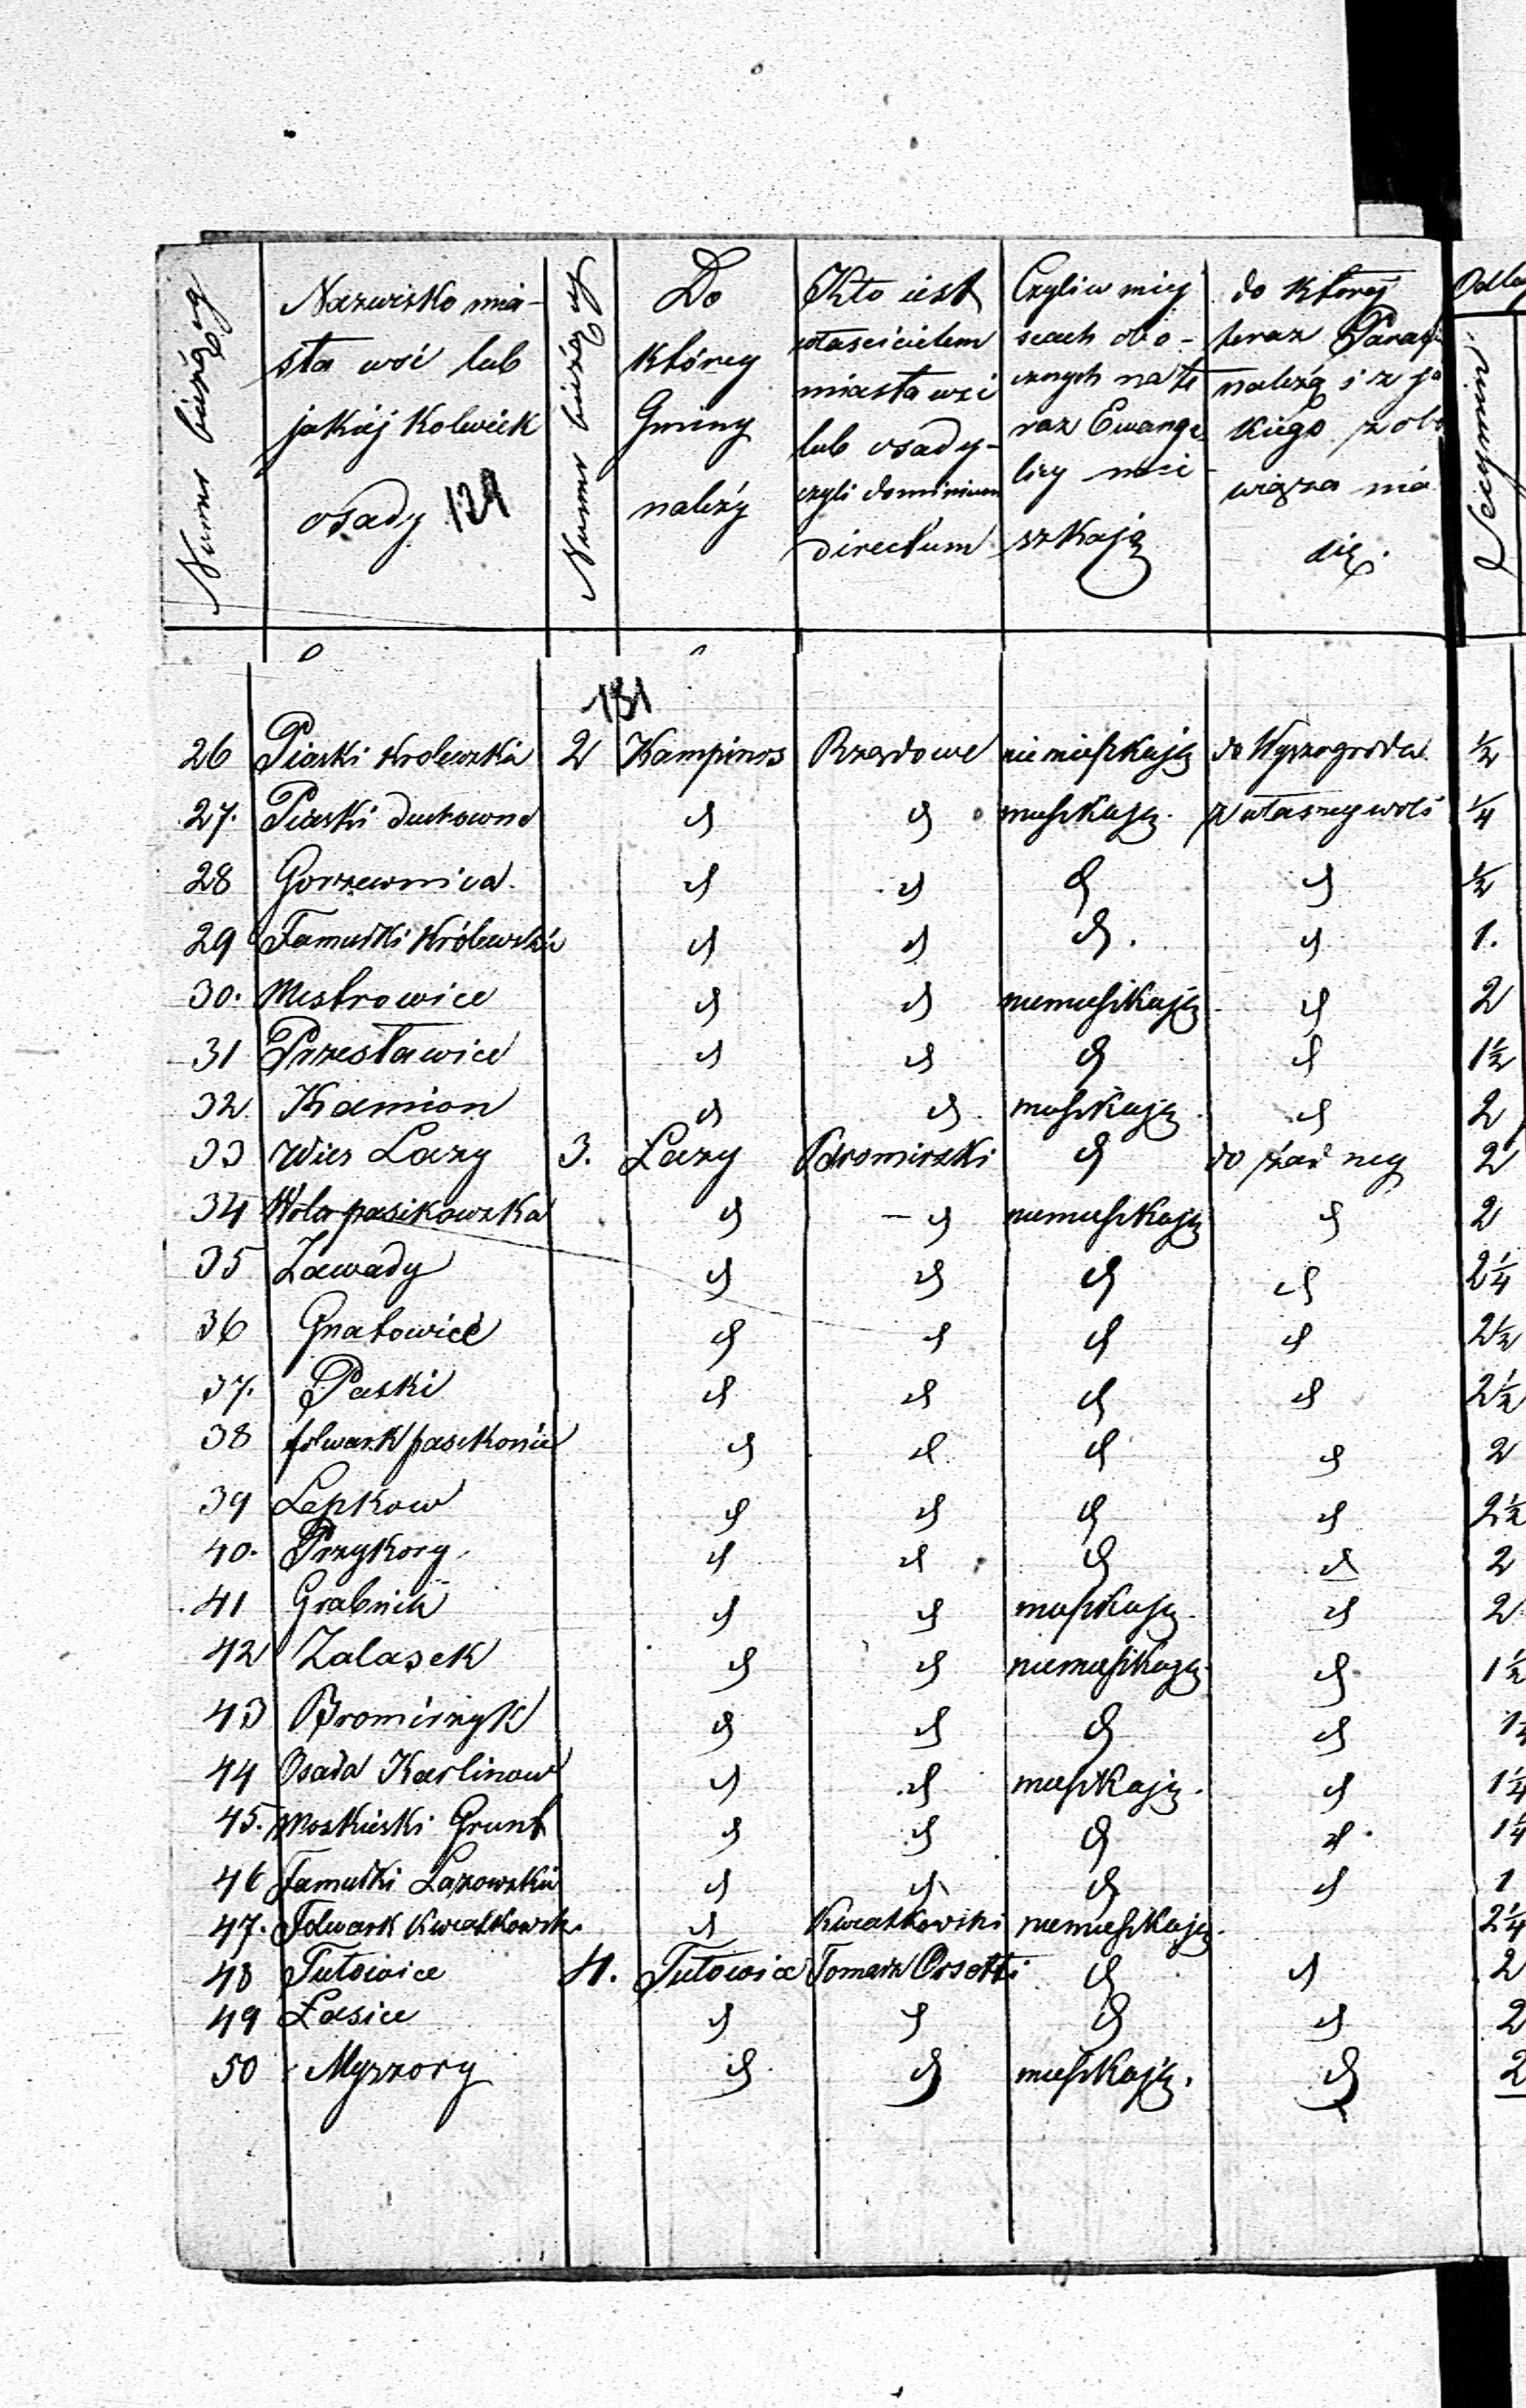 Numer bieżący
Nazwisko mia-
sta wsi lub
jakiéj kolwiek
osady 129
Numer bieżący
Do
którey
Gminy
należy
Kto iest
włascicielem
miasta wsi
lub osady-
czyli dominium
directum
Czyli w miey
scach obo-
cznych na te
raz Ewange
licy mie-
szkają
do którey
teraz Parafi
należą i z ja
kiego zobo
wiąza nia
się.
Odleg
Secymin
131
26 Piaski Krolewzkie 2 Kampinos Rządowe niemieszkają do Wyszogroda ½
27. Piaski Duchowne d d mieszkają. z własney woli ¼
28 Gorzewnica. d d d d ½
29 Famułki Królewskie d d d. d 1.
30. Mistrowice d d niemieszkają d 2
31 Przesławice d d d d 1½
32 Kamion d d. mieszkają. d 2
33 Wies Lazy 3. Łazy Bromirzki d do żad ney 2
34 Wola pasikowzka d d niemieszkają d 2
35 Zawady d d d d 2¼
36 Gnatowice d d d d 2½
37. Paski d d d d 2½
38 folwark pasikonie d d d d 2
39 Lepkow d d d d 2½
40. Przykory. d d d d 2
41 Grabnik d d mieszkają. d 2
42 Zalasek d d niemieszkają. d 1½
43 Bromirzyk d d d d
44 Osada Karlinow d d mieszkają. d 1¼
45. Moskieski Grunt d d d d. 1¼
46 Famułki Lazowzkie d d d d 1
47. Folwark Kwiatkowski d Kwiatkowski niemieszkają. 2¼
48 Tułowice 4. Tułowice Tomasz Orsetti d d 2
49 Łasice d d d d 2
50 Myszory d d mieszkają. d 2